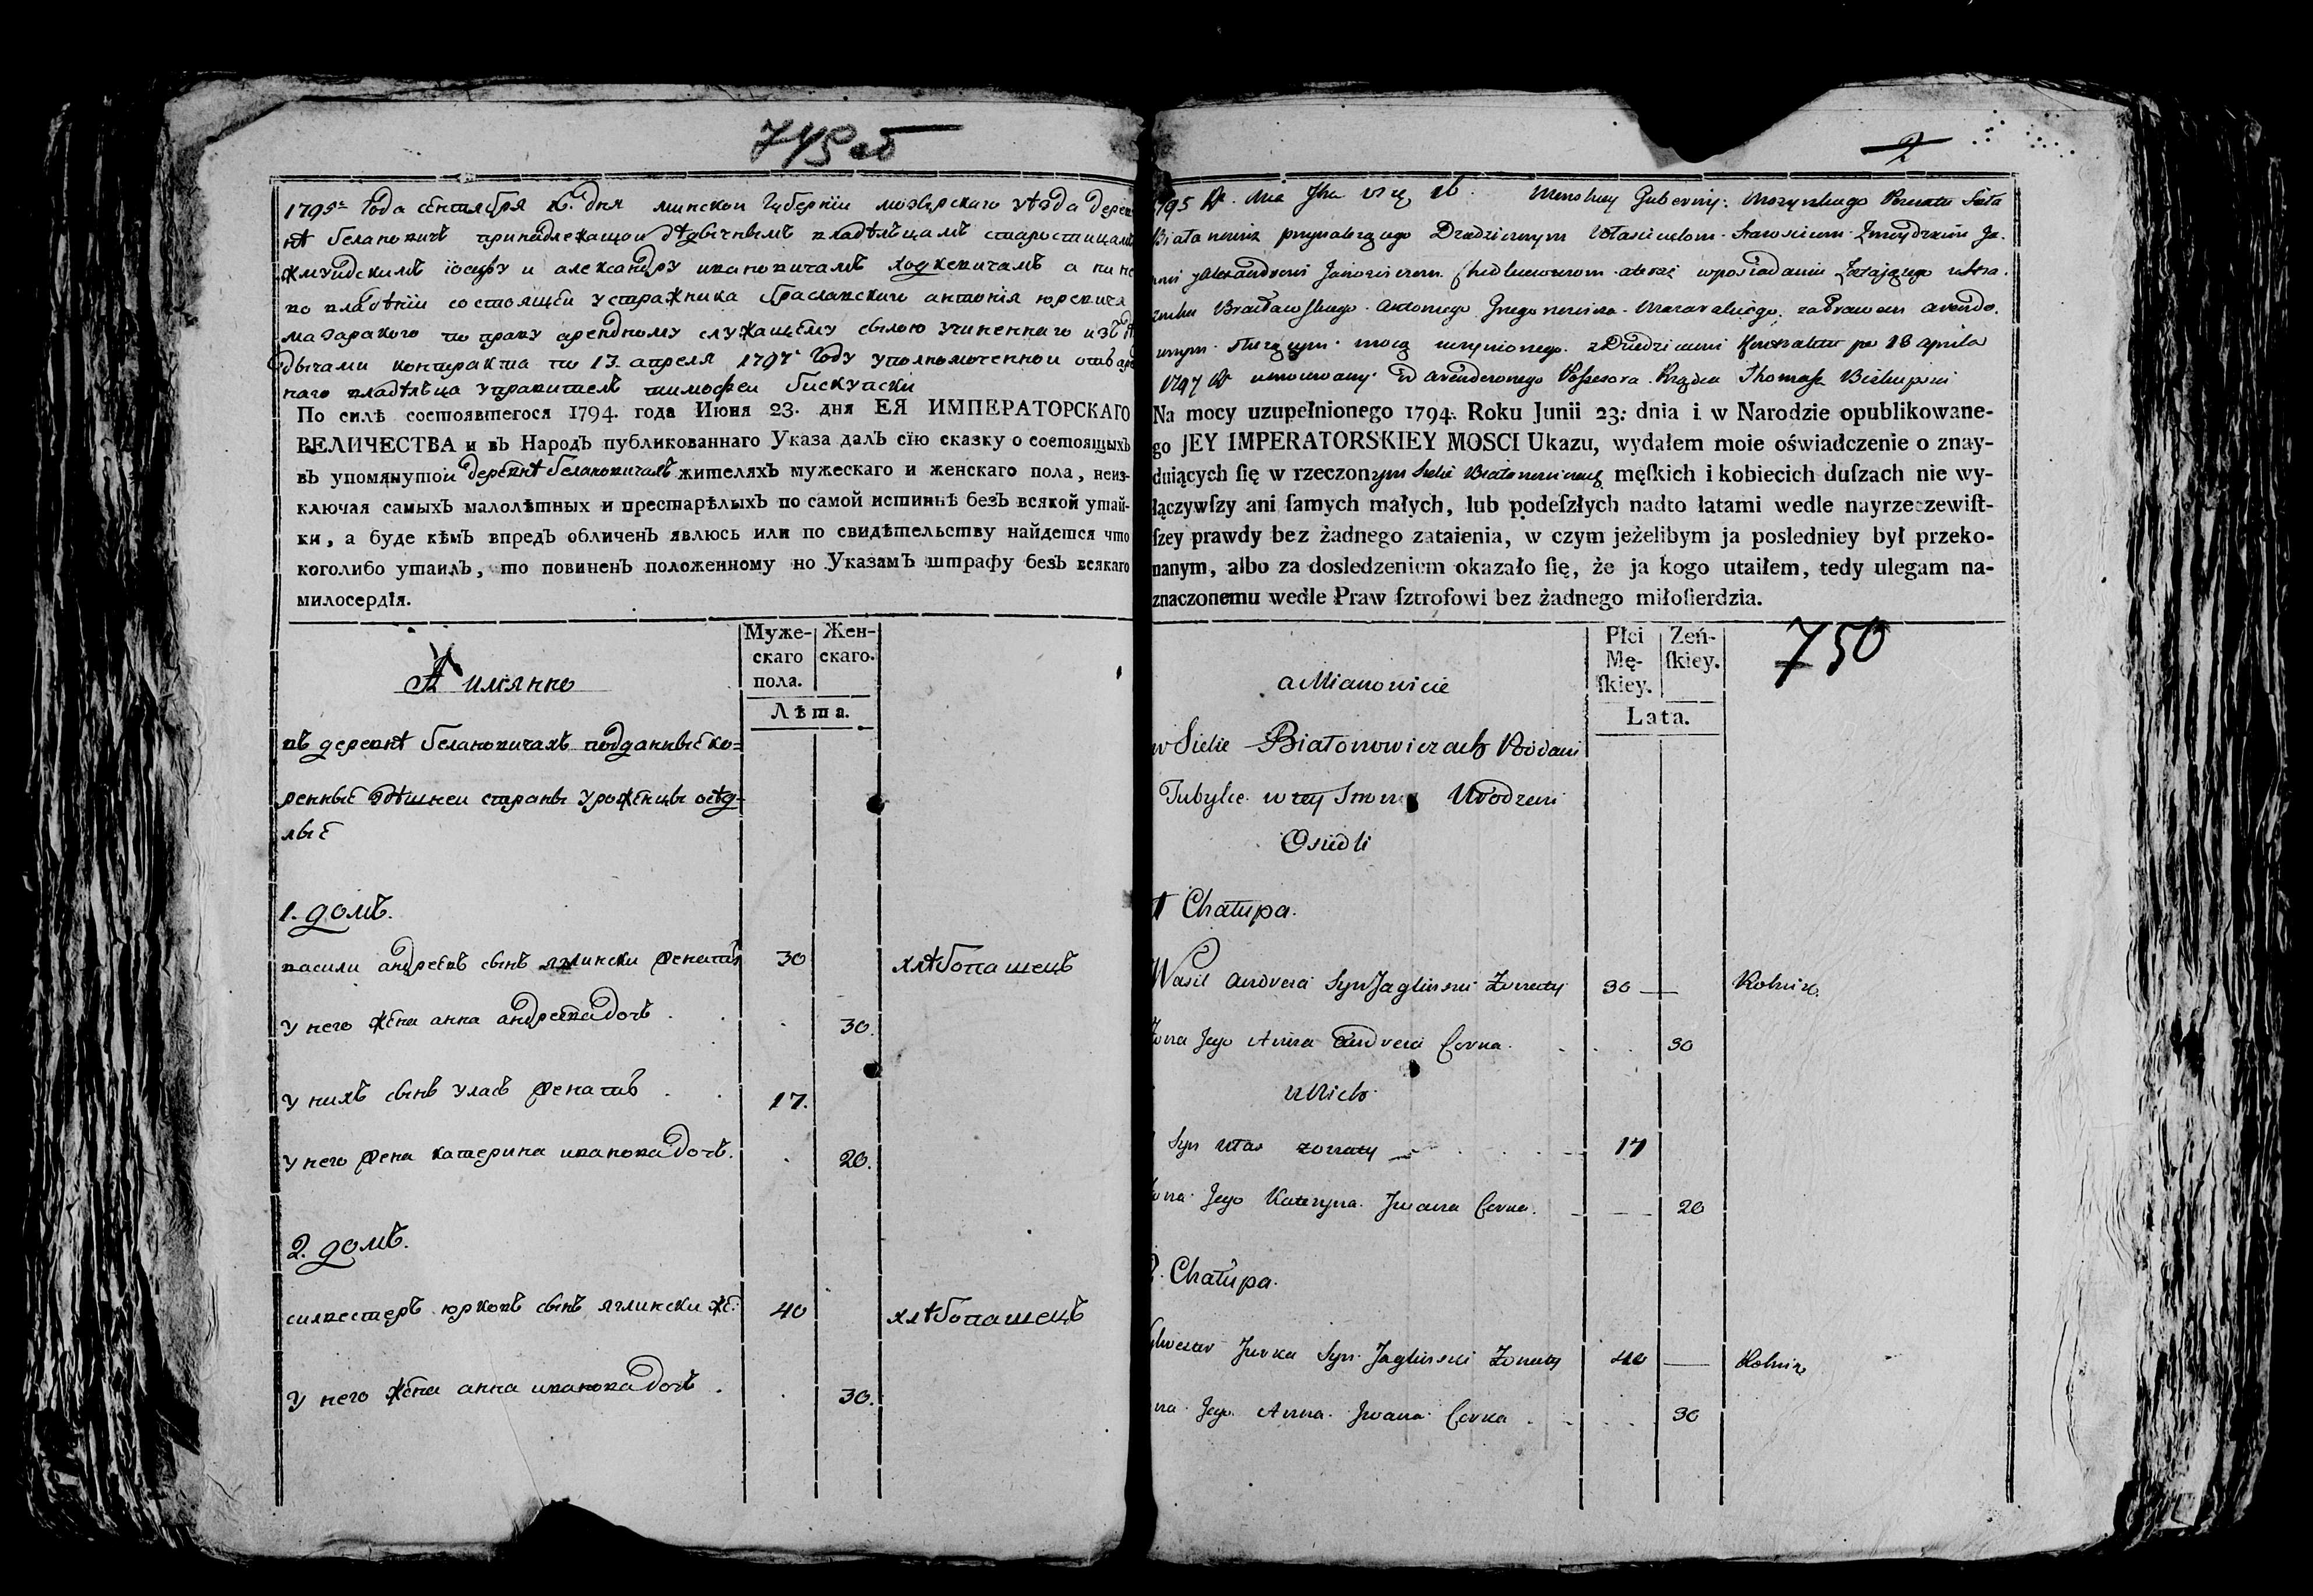 749 об
1795г Года сентября 16. дня минской Губерніи мозырскаго уѣзда дерев
нѣ белановичъ принадлежащои дѣдычнымъ владѣльцамъ старостицамъ
жмуидскимъ іосифу и александру ивановичамъ ходкевичамъ а ны не
во владѣніи состоящеи у стражника браславского антонія юревича
мазаракого по праву арендному служащему силою учиненнаго изъ дѣ
дычами контракта по 13. апреля 1797г Году уполномоченнои отъ аренд
наго владѣльца управитель тимофеи бискупски
По силѣ состоявшегося 1794. года Июня 23. дня ЕЯ ИМПЕРАТОРСКАГО
ВЕЛИЧЕСТВА и въ НародЪ публикованнаго Указа далЪ сїю сказку о состоящыхъ
въ упомянутой деревнѣ белановичахъ жителяхЪ мужескаго и женскаго пола, неиз-
ключая самыхЪ малолѣтныхъ и престарѣлыхЪ по самой истиннѣ безЪ всякой утай-
ки, а буде кѣмЪ впредЪ обличенЪ явлюсь или по свидѣтельству найдется что
коголибо утаилЪ, то повиненЪ положенному по УказамЪ штрафу безЪ всякаго
милосердїя.
Муже-
скаго
пола.
Жен-
скаго.
Лѣта.
А имянно
въ деревнѣ белановичахъ подданные ко-
ренные здѣшнеи страны уроженцы осѣд-
лые
1. домъ.
васили андреевъ сынъ яглински женатъ 30 хлѣбопашецъ
у него жена анна андреева дочь . . . 30.
у нихъ сынъ уласъ женатъ . . 17.
у него жена катерина иванова дочь. . 20.
2. домъ.
силвестеръ юрковъ сынъ яглински же: 40 хлѣбопашецъ
у него жена анна иванова дочь . . 30.
2
1795 R. Mca 16. Minskiey Gubernij: Mozyrskiego Powiatu Siela
Białanowicz przynależącego Dziedzicznym Własicielom Starościcom Zmuydzkim Jo-
Alexandrowi Janowiczom Chodkiewiczom ateraz w posiadaniu Zostającego u Stra.
znika Bracławskiego Antoniego Mazarakiego za Prawem arendo.
wnym służącym mocą uczynionego z Dziedzicami Kontraktu po 13 aprila
1797 R umocowany od arendownego Possesora Rządca Thomasz Biskupski
Na mocy uzupełnionego 1794. Roku Junii 23: dnia i w Narodzie opublikowane-
go JEY IMPERATORSKIEY MOSCI Ukazu, wydałem moie oświadczenie o znay-
duiących ſię w rzeczonym Sielie Białonowiczach męſkich i kobiecich duſzach nie wy-
łączywſzy ani ſamych małych, lub podeſzłych nadto latami wedle nayrzeczewiſt-
ſzey prawdy bez żadnego zataienia, w czym jeżelibym ja posledniey był przeko-
nanym, albo za dosledzeniem okazało ſię, że ja kogo utaiłem, tedy ulegam na-
znaczonemu wedle Praw ſztrofowi bez żadnego miłoſierdzia.
Płci
Mę-
ſkiey.
Zeń-
ſkiey.
Lata.
750
a Mianowicie
w Sielie Białonowiczach Poddani
Tubylce w tey Stronie Urodzeni
Osiedli
1 Chałupa.
Wasil Andreia Syn Jagliński Żonaty 30 — Rolnik.
Żona Jego Anna Andreia Corka. . . . 30
U Nich
Syn Ułas żonaty — . . . 17
Żona Jego Kateryna Jwana Corka. — — 20
2. Chałupa.
Sylwester Jurka Syn Jagliński Żonaty 40 — Rolnik
Żona Jego Anna Jwana Corka . . . . 30